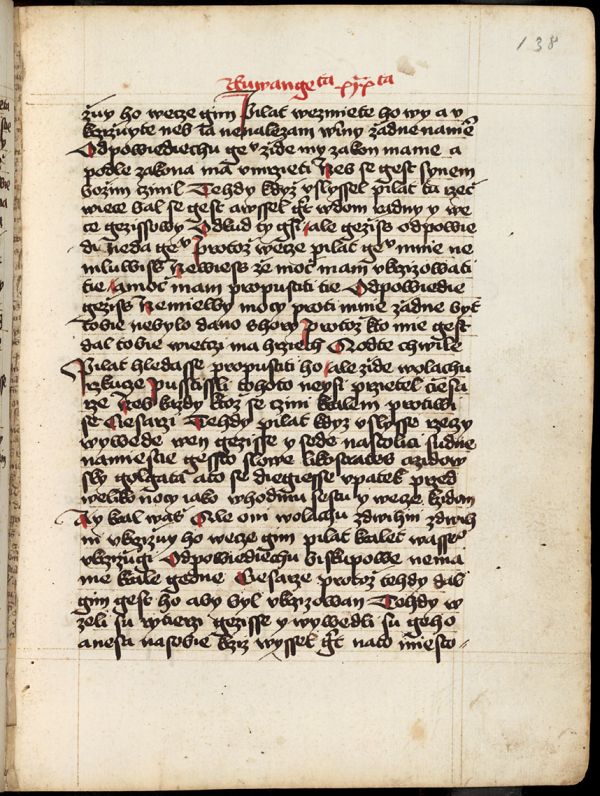 138
žuy ho wecze gim Pilat wezmiete ho wy a v
krzižuyte neb ta nenalezam winy žadne na mē
Odpowiediechu geᵘ žide my zakon mame a
podle zakona ma vmrzieti Neb se gest synem
božim czinil Tehdy když vslyssel pilat ta rzecž
wiece bal se gest a wssel gt w dom radny y we
ce gezissowy Odkud ty gsi ale geziss odpowie
di neda geᵘ Protož wecze pilat geᵘ mnie ne
mluwiss Newiess že moc mam vkrzizowati
tie A moc mam propustiti tie Odpowiedie
geziss Nemielby mocy proti mnie žadne byt
tobie nebylo dano s hory Protož kto mie gest
dal tobie wietczi ma hrziech Od te chwile
Pilat hledasse propustiti ho ale žide wolachu
rzkucze Pustissli tohoto neysi przietel ciesa
rze Neb kazdy ktož se czini kralem protiwi
se Ciesarzi Tehdy pilat kdyz vslysse rzeczy
wywede wen gezisse y sede na stolici sudne
na miestie gessto slowe
sky golgata a to se diegiesse v patek przed
weliku noci iako w hodinu sestu y wecze židom
Ay kral wáš Ale oni wolachu zdwihni zdwih
ni vkrzizuy ho wecze gim pilat krale wasseᵒ
vkrzizugi Odpowiediechu biskupowe nema
me krale gedne Ciesarze protož tehdy dal
gim gest ho aby byl vkrzizowan Tehdy w
zeli su rytierzi gezisse y wywedli su geho
a nesa na sobie krziz wyssel gt na to miesto